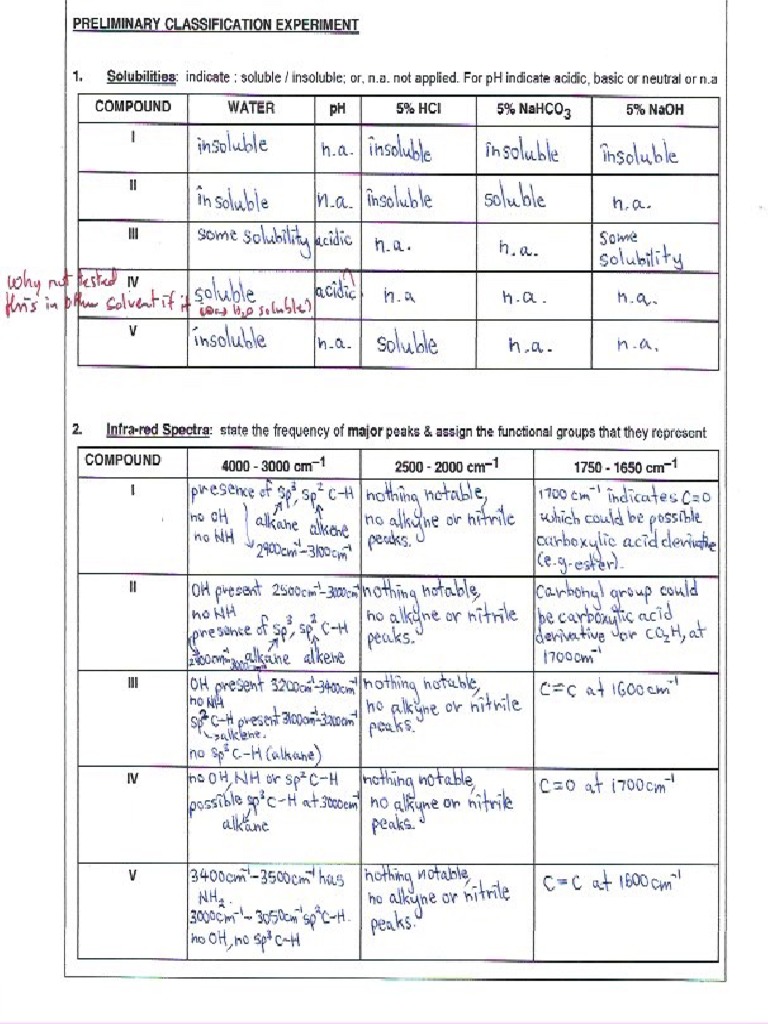 PRELIMINARY CLASSIFICATION EXPERIMENT
1. Solubilities: indicate : soluble / insoluble; or, n.a. not applied. For pH indicate acidic, basic or neutral or n.a
COMPOUND WATER pH 5% HCl 5% NaHCO3 5% NaOH
I insoluble n.a. insoluble insoluble insoluble
II insoluble n.a. insoluble soluble n.a.
III some solubility acidic n.a. n.a. some solubility
Why not tested
this in other solvent if it was H2O soluble?
IV soluble acidic n.a n.a. n.a.
V insoluble n.a. soluble n.a. n.a.
2. Infra-red Spectra: state the frequency of major peaks & assign the functional groups that they represent
COMPOUND 4000 - 3000 cm-1 2500 - 2000 cm-1 1750 - 1650 cm-1
I
presence of sp3, sp2 C-H
no OH alkane alkene
no NH 2900cm-1-3100cm-1
nothing notable,
no alkyne or nitrile
peaks.
1700 cm-1 indicates C=O
which could be possible
carboxylic acid derivative
(e.g. ester).
II
OH present 2500cm-1-3000cm-1
no NH
presence of sp3, sp2 C-H
alkane alkene
nothing notable,
no alkyne or nitrile
peaks.
Carbonyl group could
be carboxylic acid
derivative or CO2H, at
1700cm-1
III
OH present 3200cm-1-3400cm-1
no NH
sp2 C-H present 3100cm-1-3200cm-1
alkene.
no sp3 C-H (alkane)
nothing notable,
no alkyne or nitrile
peaks.
C=C at 1600cm-1
IV
no OH, NH or sp2 C-H
possible sp3 C-H at 3000cm-1
alkane
nothing notable,
no alkyne or nitrile
peaks.
C=O at 1700cm-1
V
3400cm-1-3500cm-1 has
NH2.
3000cm-1-3050cm-1 sp2 C-H.
no OH, no sp3 C-H
nothing notable,
no alkyne or nitrile
peaks.
C=C at 1600cm-1